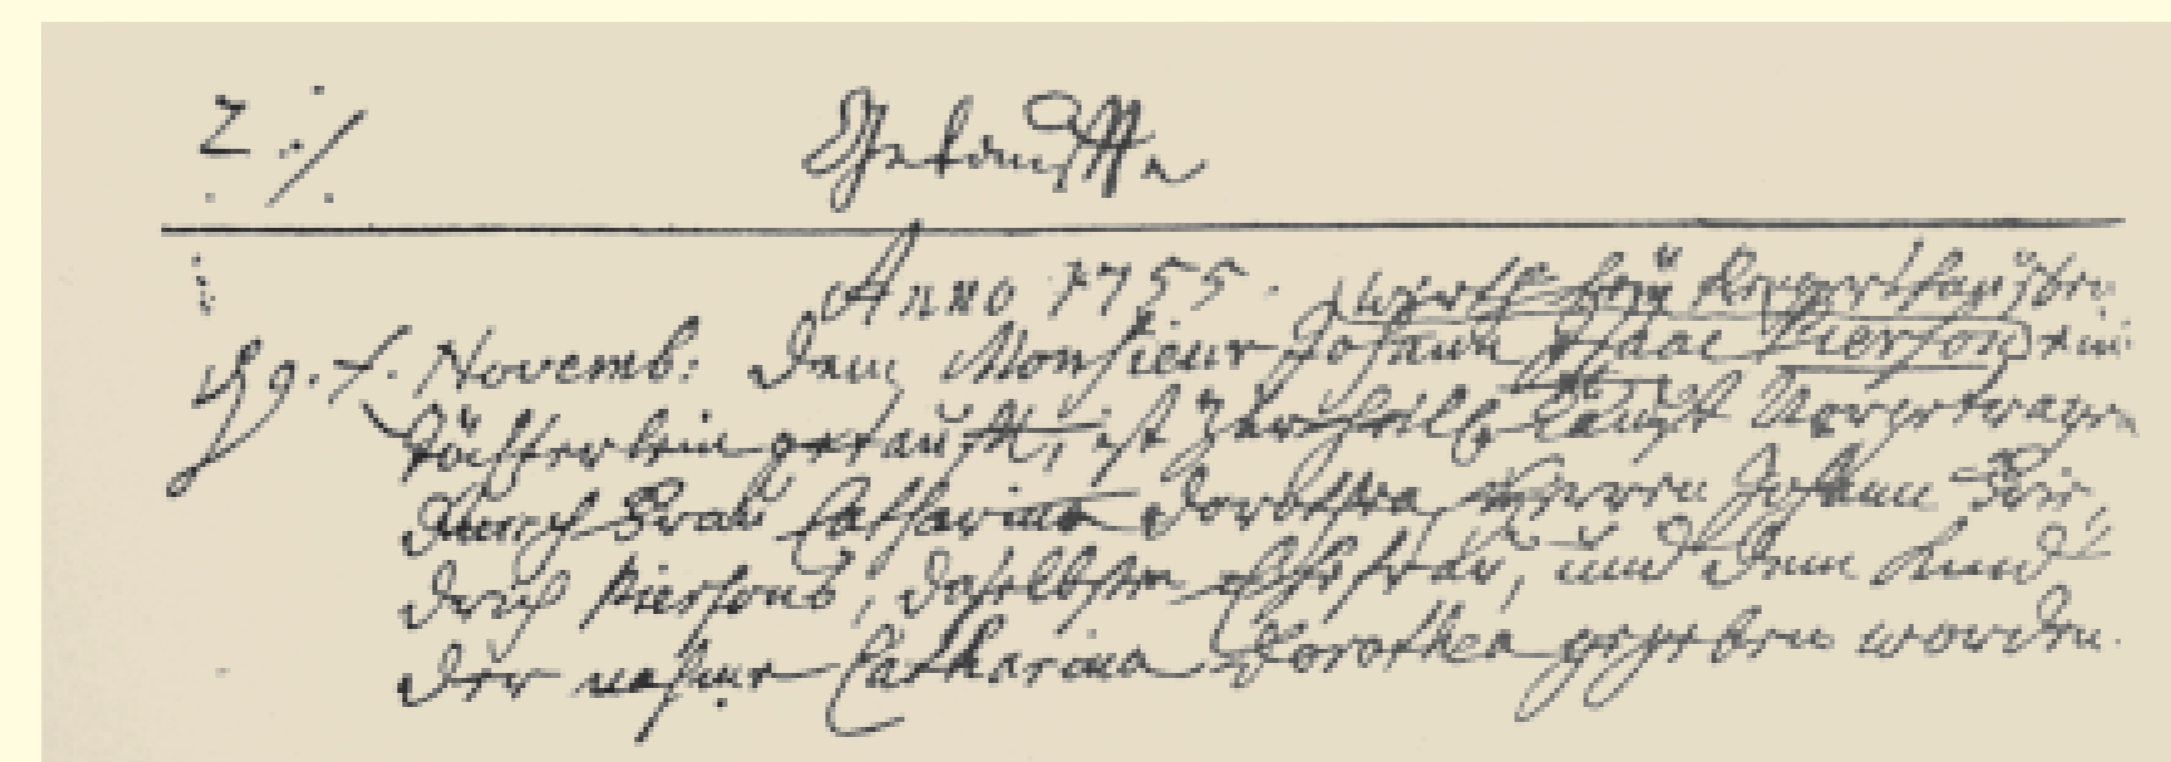 2 ./.
Getauffte
Anno 1755.
d. 9. t. Novemb: dem Monsieur Johann Isaac Pierson ein
töchterlein getaufft, ist Zur heil: tauff Vorgetragen
durch Frau Catharina Dorothea, Herrn Johann Frie,
derich Piersons, daselbsten Ehefrau, und dem Kind
der nahme Catharina Dorothea gegeben worden.